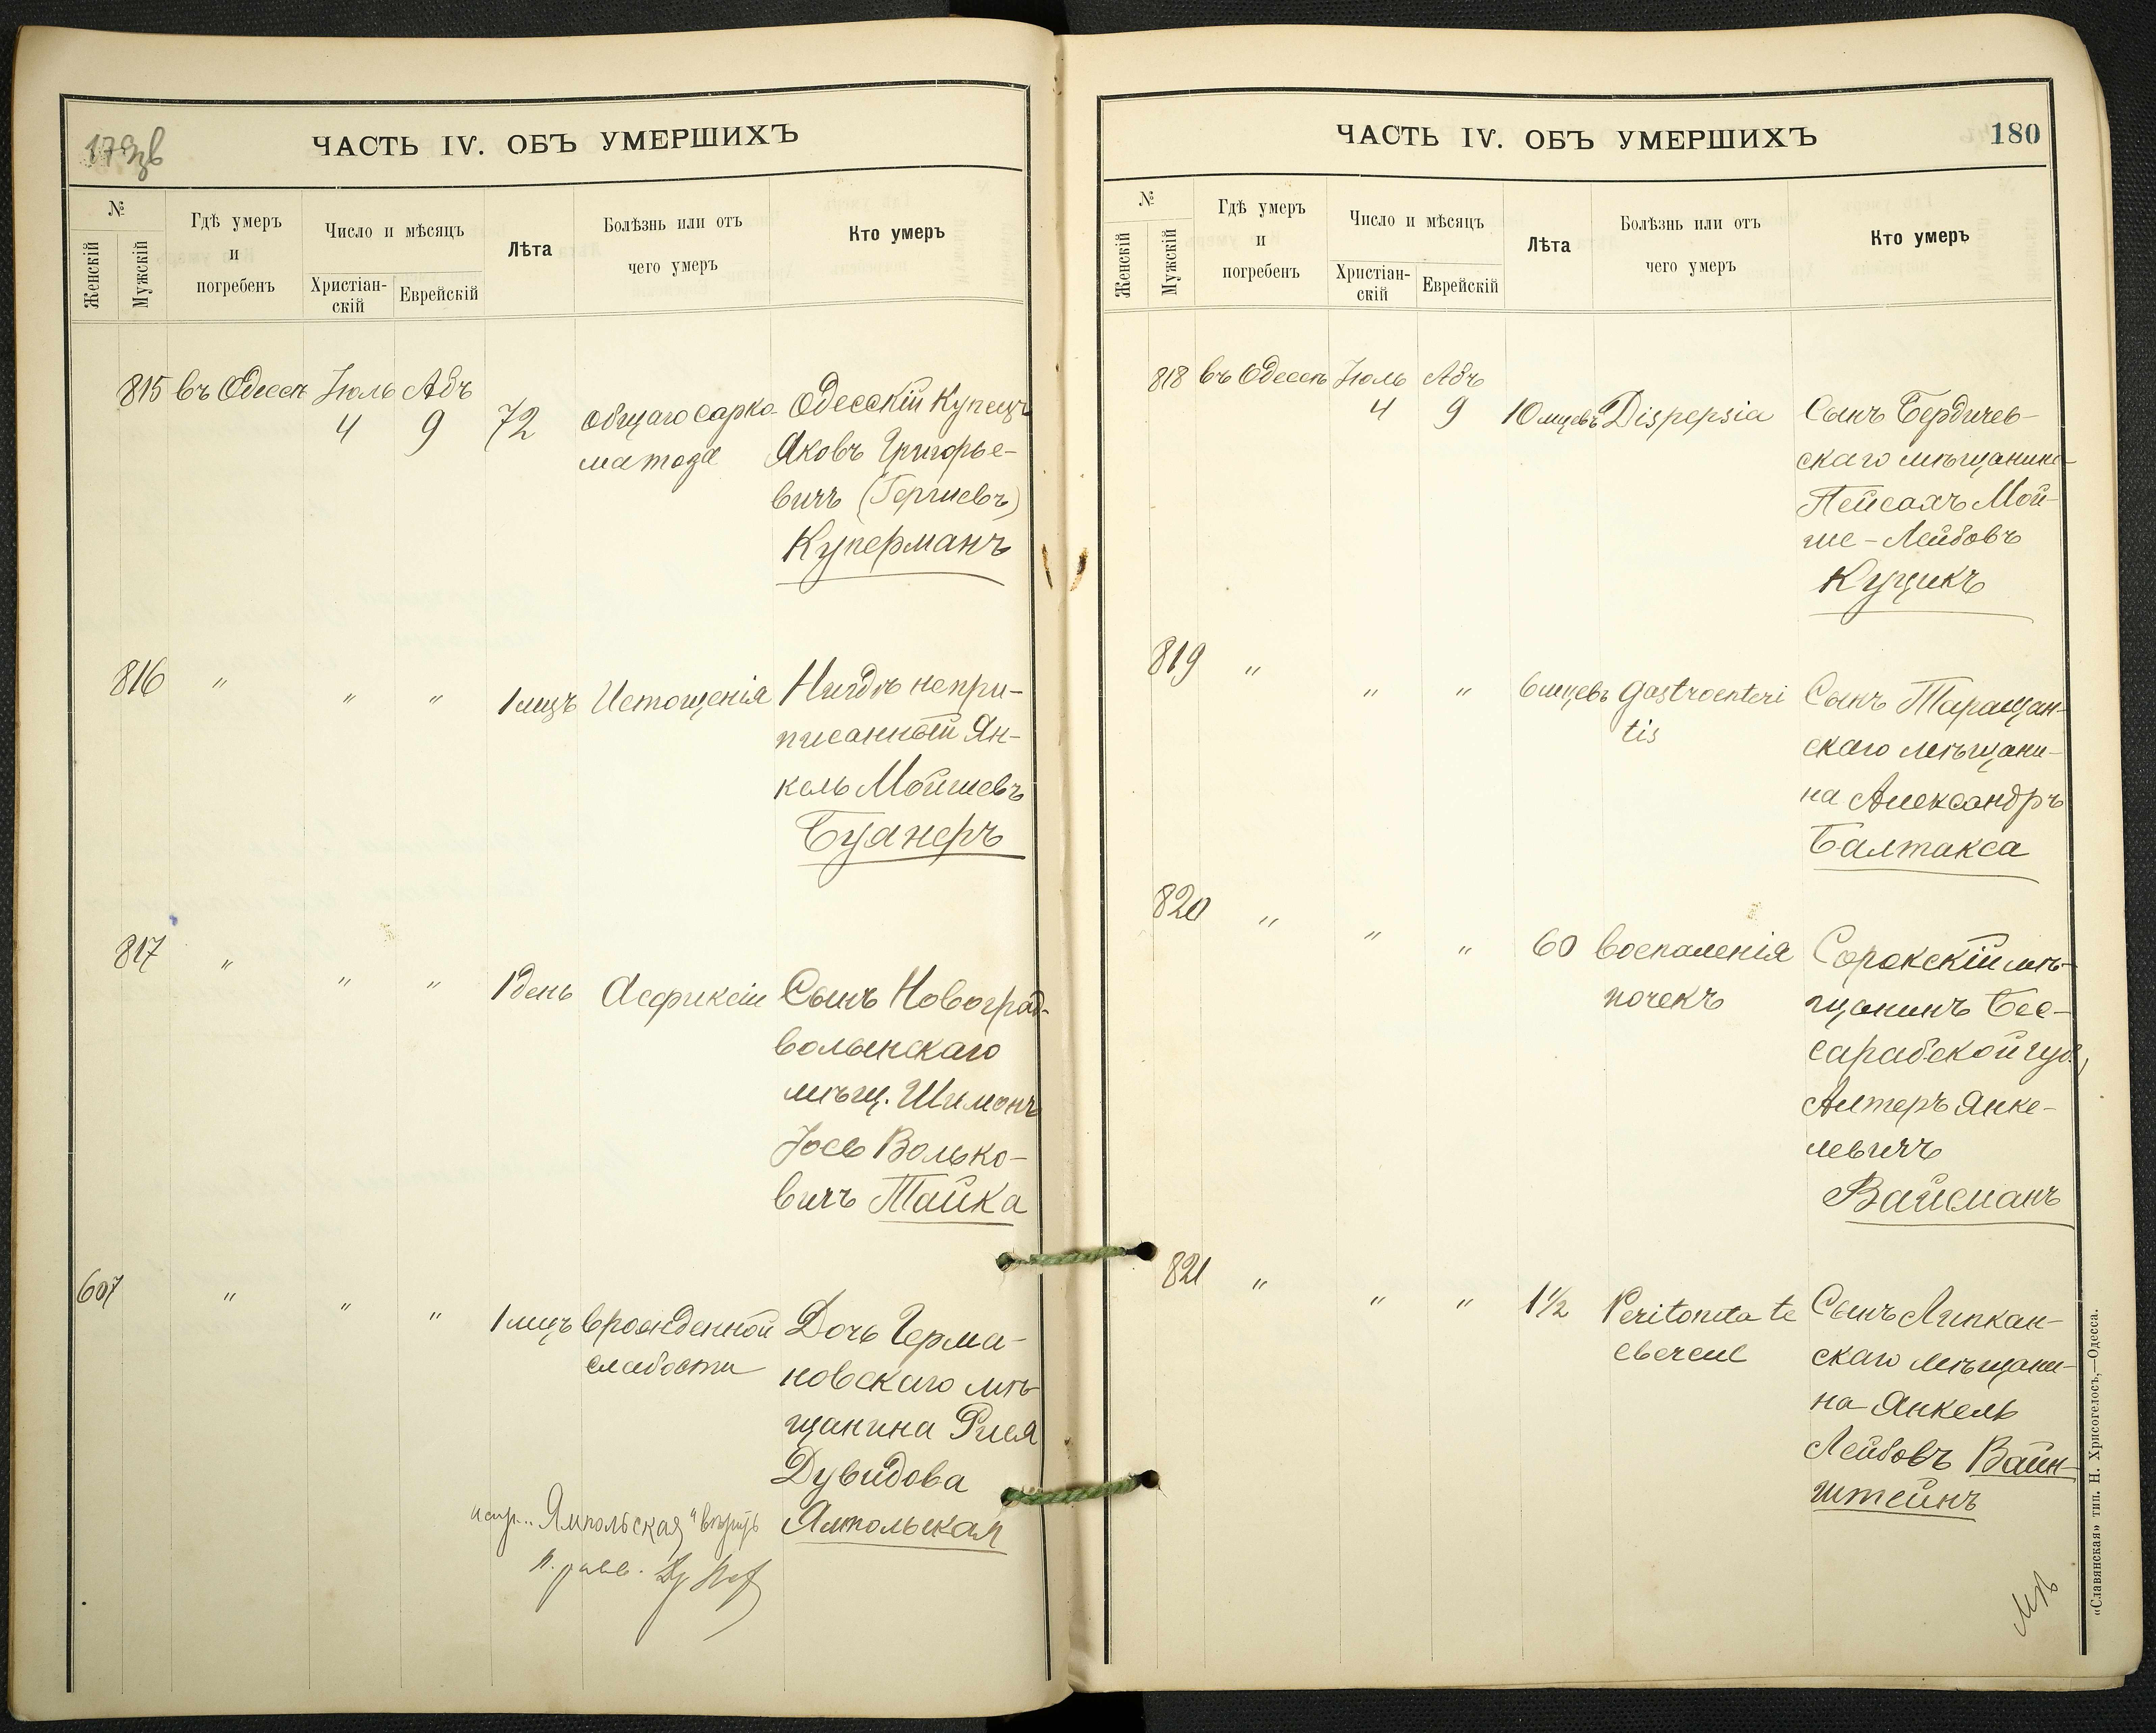 179об
ЧАСТЬ IV. ОБЪ УМЕРШИХЪ
№
Женскій
Мужскій
Гдѣ умеръ
и
погребенъ
Число и мѣсяцъ
Христіан-
скій
Еврейскій
Лѣта
Болѣзнь или отъ
чего умеръ
Кто умеръ
815 въ Одессѣ Іюль Абъ
4 9 72 общаго сарко-
матоза
Одесскій Купецъ
Яковъ Григорье-
вичъ (Гершевъ)
Куперманъ
816 " " " 1 мцъ Истощенія
Нигдѣ непри-
писанный Ян-
кель Мойшевъ
Буанеръ
817 " " " 1 день Асфиксіи
Сынъ Новоград-
волынскаго
мѣщ. Шимонъ
Іось Волько-
вичъ Тайка
607 " " " 1 мцъ врожденной
слабости
Дочь Герма-
новскаго мѣ-
щанина Рися
Дувидова
Ямпольская
"Ямпольская" вѣрить
ЧАСТЬ IV. ОБЪ УМЕРШИХЪ
180
№
Женскій
Мужскій
Гдѣ умеръ
и
погребенъ
Число и мѣсяцъ
Христіан-
скій
Еврейскій
Лѣта
Болѣзнь или отъ
чего умеръ
Кто умеръ
818 въ Одессѣ Іюль Абъ
4 9 10 мцевъ Dispepsia
Сынъ Бердичев-
скаго мѣщанина
Пейсахъ Мой-
ше-Лейбовъ
Куцикъ
819 " " " 6 мцевъ Gastroenteri
tis
Сынъ Таращан-
скаго мѣщани-
на Александръ
Балтакса
820 " " " 60 воспаленія
почекъ
Сорокскій мѣ-
щанинъ Бес-
сарабской губ.,
Алтеръ Янке-
левичъ
Вайсманъ
821 " " " 1 1/2
Сынъ Липкан-
скаго мѣщани-
на Янкель
Лейбовъ Вайн-
штейнъ
«Славянская» тип. Н. Хрисогелосъ,—Одесса.